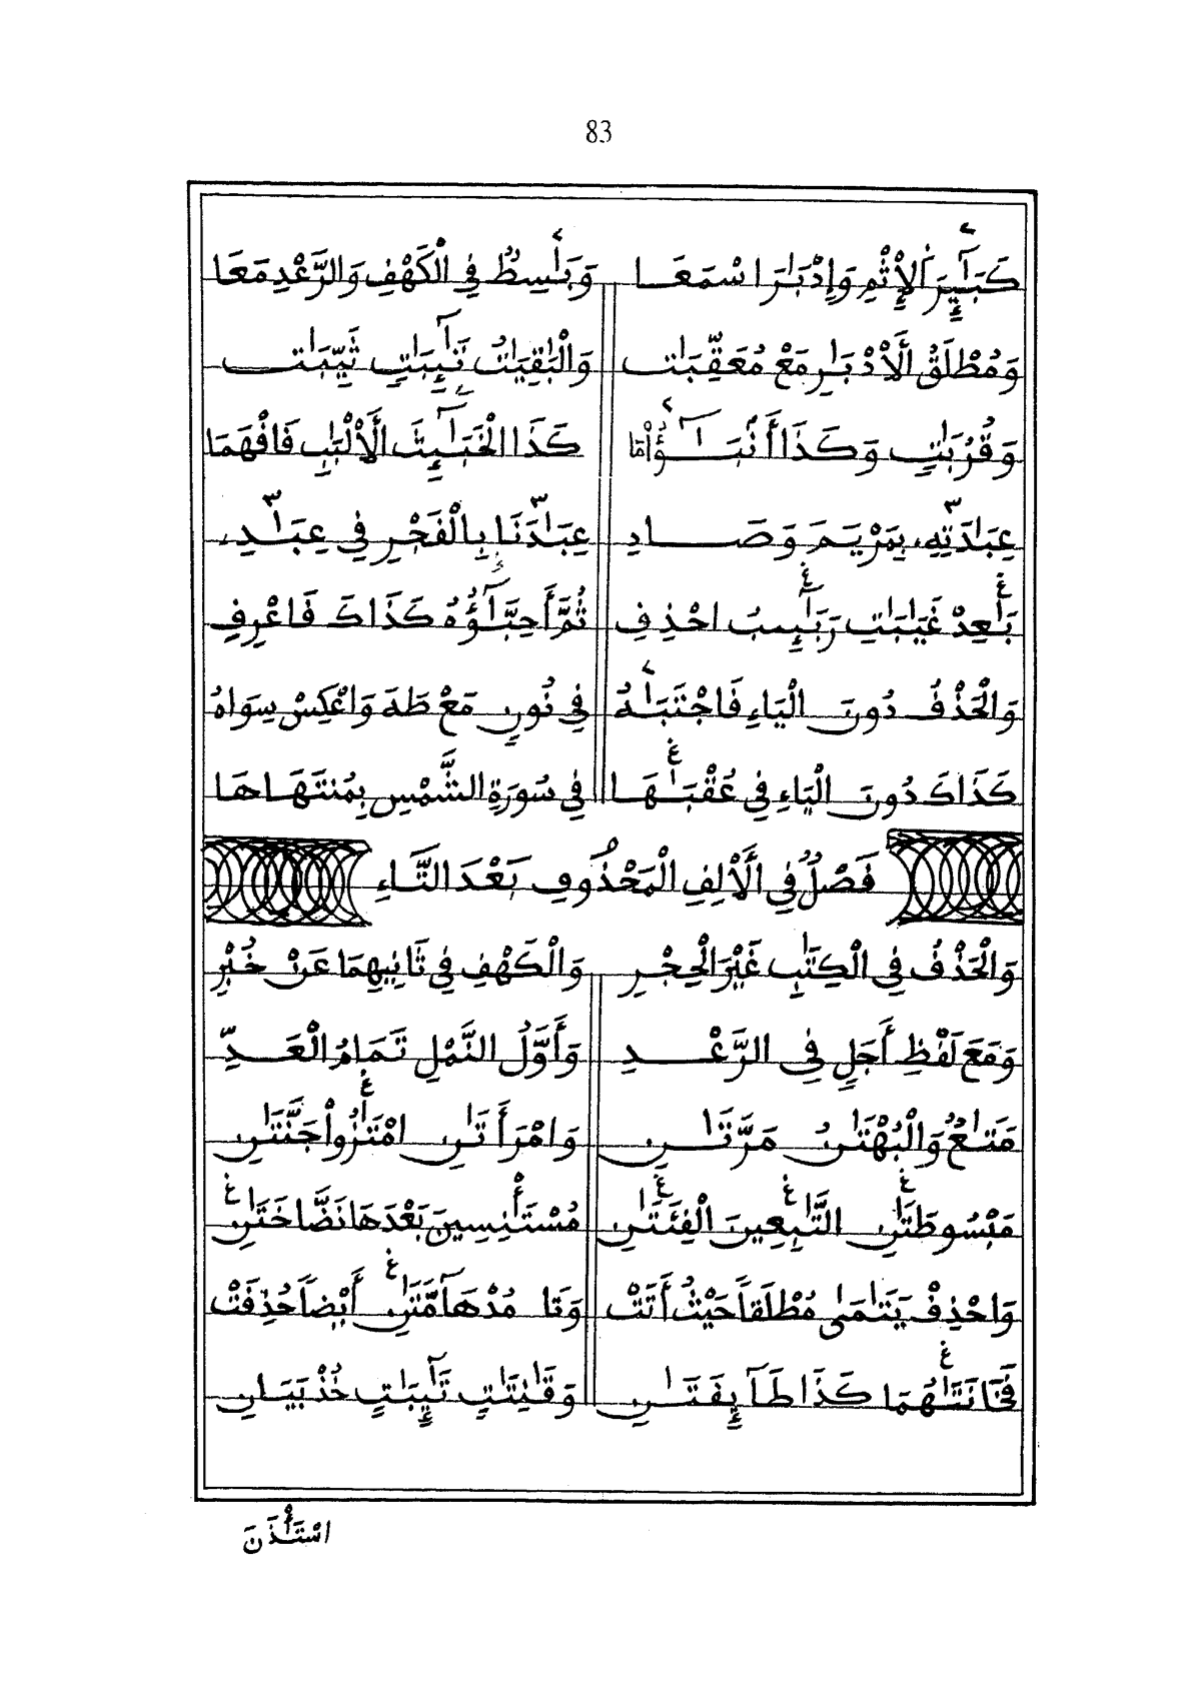 83
كَبَٰٓئِرَ اَلْإِثْمِ وَإِدْبَٰرَ اسْمَعَا وَبَٰسِطُ فِي الْكَهْفِ وَالرَّعْدِ مَعَا
وَمُطْلَقُ اَلَادْبَٰرِ مَعْ مُعَقِّبَٰتِ وَالْبَٰقِيَٰتُ تَٰٓئِبَٰتٍ ثَيِّبَٰتِ
وَقُرُبَٰتٍ وَكَذَا أَنۢبَٰٓؤُاْمَا كَذَا الْخَبَٰٓئِثَ اَلَالْبَٰبِ فَافْهَمَا
عِبَٰدَتِهِۦ بِمَرْيَمَ وَصَادِ عِبَٰدَنَا بِالْفَجْرِ فِي عِبَٰدِے
بَٰعِدْ غَيَٰبَٰتِ رَبَٰٓئِبُ احْذِفِ ثُمَّ أَحِبَّٰٓؤُهُ كَذَاكَ فَاعْرِفِ
وَالْحَذْفُ دُونَ الْيَاءِ فَاجْتَبَٰهُ فِي نُونٍ مَعْ طَهَ وَاعْكِسْ سِوَاهُ
كَذَاكَ دُونَ الْيَاءِ فِي عُقْبَٰهَا فِي سُورَةِ الشَّمْسِ بِمُنتَهَاهَا
فَصْلٌ فِي اَلَالِفِ الْمَحْذُوفِ بَعْدَ التَّاءِ
وَالْحَذْفُ فِي الْكِتَٰبِ غَيْرَ الْحِجْرِ وَالْكَهْفِ فِي ثَانِيهِمَا عَنْ خُبْرِ
وَمَعَ لَفْظِ أَجَلٍ فِي الرَّعْدِ وَأَوَّلُ النَّمْلِ تَمَامُ الْعَدِّ
مَتَٰعُ وَالْبُهْتَٰنُ مَرَّتَٰنِ وَامْرَأَتَٰنِ امْتَٰزُواْ جَنَّتَٰنِ
مَبْسُوطَتَٰنِ التَّٰبِعِينَ الْفِئَتَٰنِ مُسْتَٰنِسِينَ بَعْدَهَا نَضَّاخَتَٰنِ
وَاحْذِفْ يَتَٰمَىٰ مُطْلَقاً حَيْثُ أَتَتْ وَتَا مُدْهَآمَّتَٰنِ أَيْضاً حُذِفَتْ
فَخَانَتَٰهُمَا كَذَا طَآئِفَتَٰنِ وَقَٰنِتَٰتٍ تَٰٓئِبَٰتٍ خُذْ بَيَانِ
اسْتَٰٔذَنَ